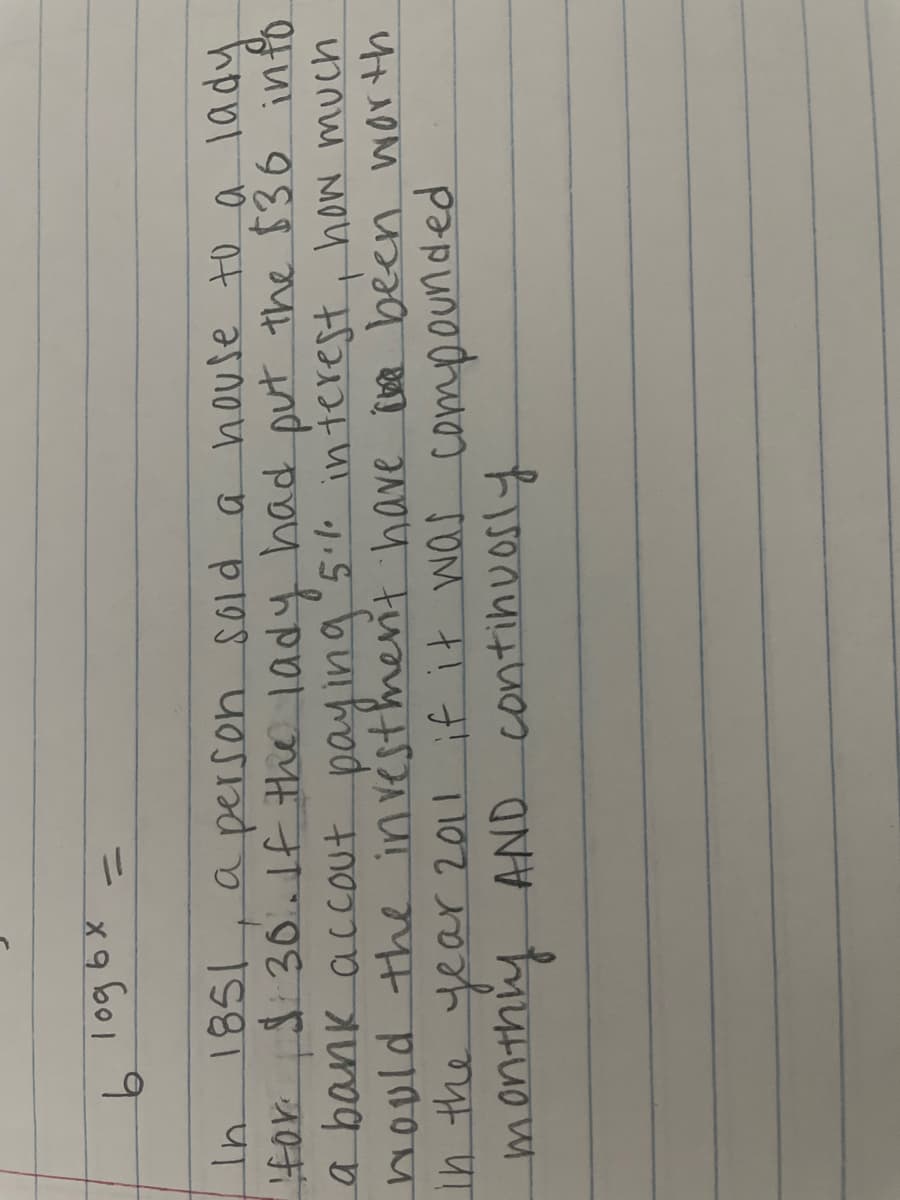 b log b x =
In 1851, a person sold a house to a lady
for $ 36. If the lady had put the $36 into
a bank accout paying 5% interest, how much
would the investment have been worth
in the year 2011 if it was compounded
monthly AND continuosly